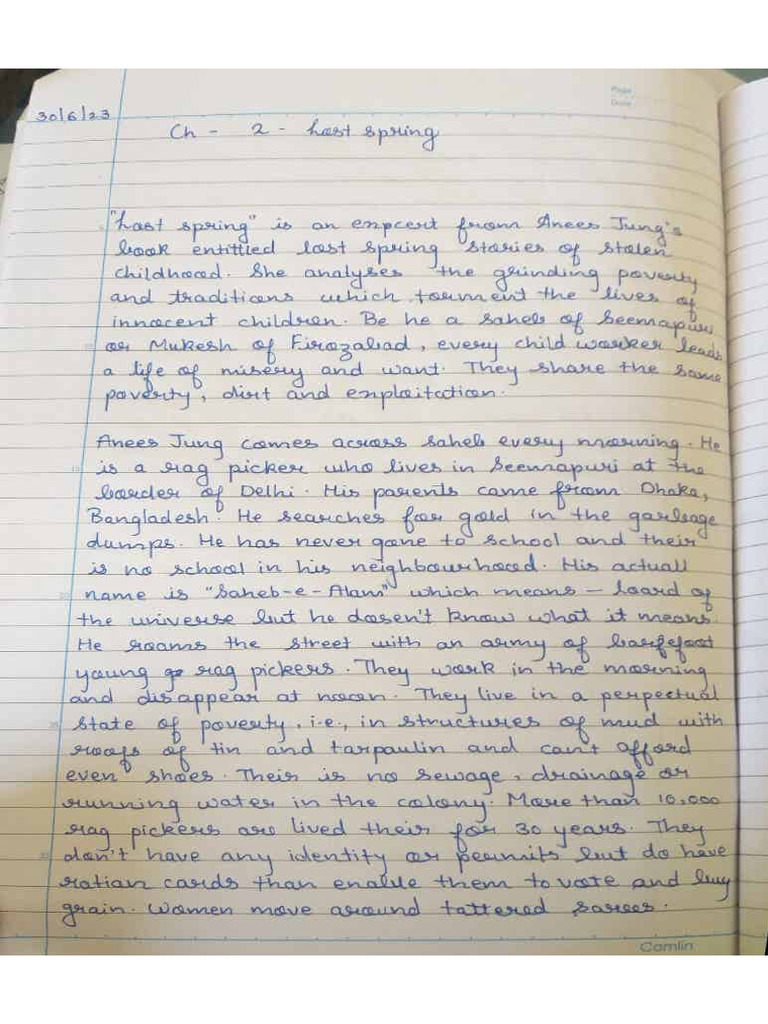 Page
Date
30/6/23
Ch - 2 - Lost spring
"Lost spring" is an enpcert from Anees Jung's
book entittled lost spring stories of stolen
childhood. She analyses the grinding poverty
and traditions which torment the lives of
innocent children. Be he a saheb of Seemapuri
or Mukesh of Firozabad, every child worker leads
a life of misery and want. They share the same
poverty, dirt and exploitation.
Anees Jung comes across saheb every morning. He
is a rag picker who lives in Seemapuri at the
border of Delhi. His parents came from Dhaka,
Bangladesh. He searches for gold in the garbage
dumps. He has never gone to school and their
is no school in his neighbourhood. His actual
name is "Saheb-e-Alam" which means - loard of
the universe but he dosen't know what it means.
He roams the street with an army of barefoot
young rag pickers. They work in the morning
and disappear at noon. They live in a perpectual
state of poverty, i.e., in structures of mud with
roofs of tin and tarpaulin and can't afford
even shoes. Their is no sewage, drainage or
running water in the colony. More than 10,000
rag pickers are lived their for 30 years. They
don't have any identity or permits but do have
ration cards than enable them to vote and buy
grain. Women move around tattered sarees.
Camlin